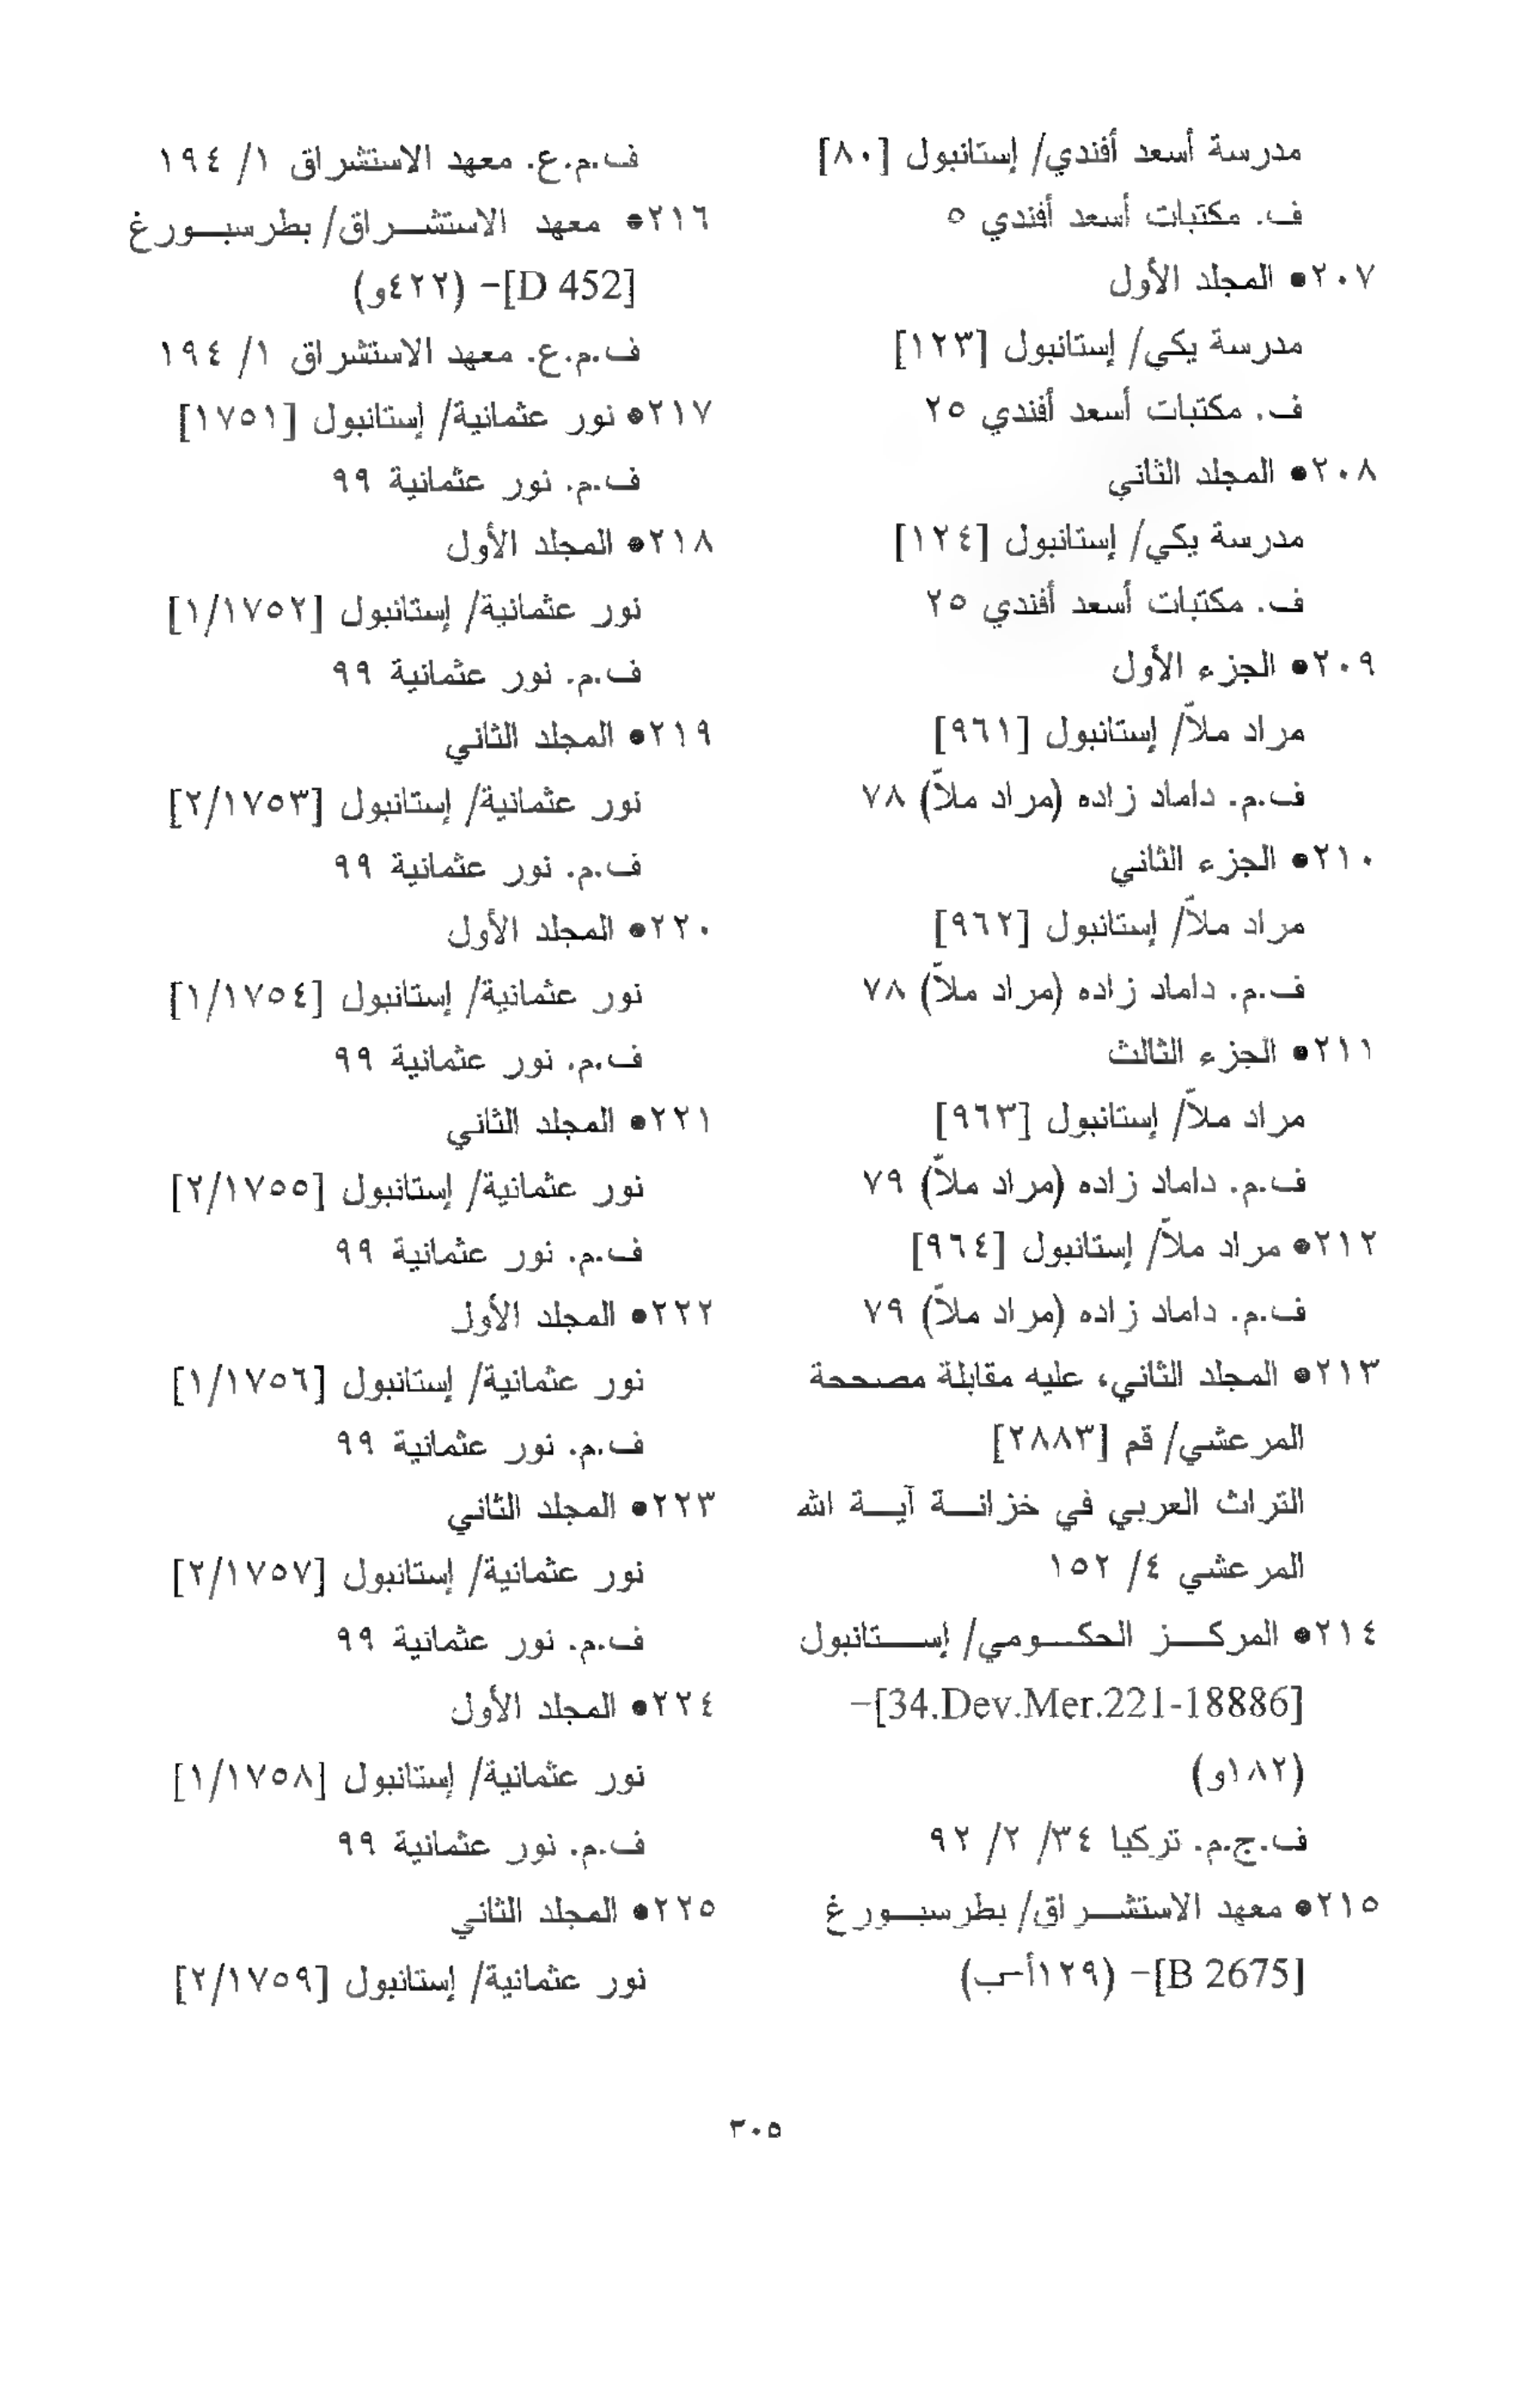 مدرسة أسعد أفندي/ إستانبول [٨٠]
ف. مكتبات أسعد أفندي ٥
٢٠٧• المجلد الأول
مدرسة يكي/ إستانبول [١٢٣]
ف. مكتبات أسعد أفندي ٢٥
٢٠٨• المجلد الثاني
مدرسة يكي/ إستانبول [١٢٤]
ف. مكتبات أسعد أفندي ٢٥
٢٠٩• الجزء الأول
مراد ملاّ/ إستانبول [٩٦١]
ف.م. داماد زاده (مراد ملاّ) ٧٨
٢١٠• الجزء الثاني
مراد ملاّ/ إستانبول [٩٦٢]
ف.م. داماد زاده (مراد ملاّ) ٧٨
٢١١• الجزء الثالث
مراد ملاّ/ إستانبول [٩٦٣]
ف.م. داماد زاده (مراد ملاّ) ٧٩
٢١٢• مراد ملاّ/ إستانبول [٩٦٤]
ف.م. داماد زاده (مراد ملاّ) ٧٩
٢١٣• المجلد الثاني، عليه مقابلة مصححة
المرعشي/ قم [٢٨٨٣]
التراث العربي في خزانــة آيــة الله
المرعشي ٤/ ١٥٢
٢١٤• المركــز الحكــومي/ إســتانبول
[34.Dev.Mer.221-18886]-
(١٨٢و)
ف.ج.م. تركيا ٣٤/ ٢/ ٩٢
٢١٥• معهد الاستشــراق/ بطرسبــورغ
[B 2675]- (١٢٩أ-ب)
ف.م.ع. معهد الاستشراق ١/ ١٩٤
٢١٦• معهد الاستشــراق/ بطرسبــورغ
[D 452]- (٤٢٢و)
ف.م.ع. معهد الاستشراق ١/ ١٩٤
٢١٧• نور عثمانية/ إستانبول [١٧٥١]
ف.م. نور عثمانية ٩٩
٢١٨• المجلد الأول
نور عثمانية/ إستانبول [١/١٧٥٢]
ف.م. نور عثمانية ٩٩
٢١٩• المجلد الثاني
نور عثمانية/ إستانبول [٢/١٧٥٣]
ف.م. نور عثمانية ٩٩
٢٢٠• المجلد الأول
نور عثمانية/ إستانبول [١/١٧٥٤]
ف.م. نور عثمانية ٩٩
٢٢١• المجلد الثاني
نور عثمانية/ إستانبول [٢/١٧٥٥]
ف.م. نور عثمانية ٩٩
٢٢٢• المجلد الأول
نور عثمانية/ إستانبول [١/١٧٥٦]
ف.م. نور عثمانية ٩٩
٢٢٣• المجلد الثاني
نور عثمانية/ إستانبول [٢/١٧٥٧]
ف.م. نور عثمانية ٩٩
٢٢٤• المجلد الأول
نور عثمانية/ إستانبول [١/١٧٥٨]
ف.م. نور عثمانية ٩٩
٢٢٥• المجلد الثاني
نور عثمانية/ إستانبول [٢/١٧٥٩]
٣٠٥